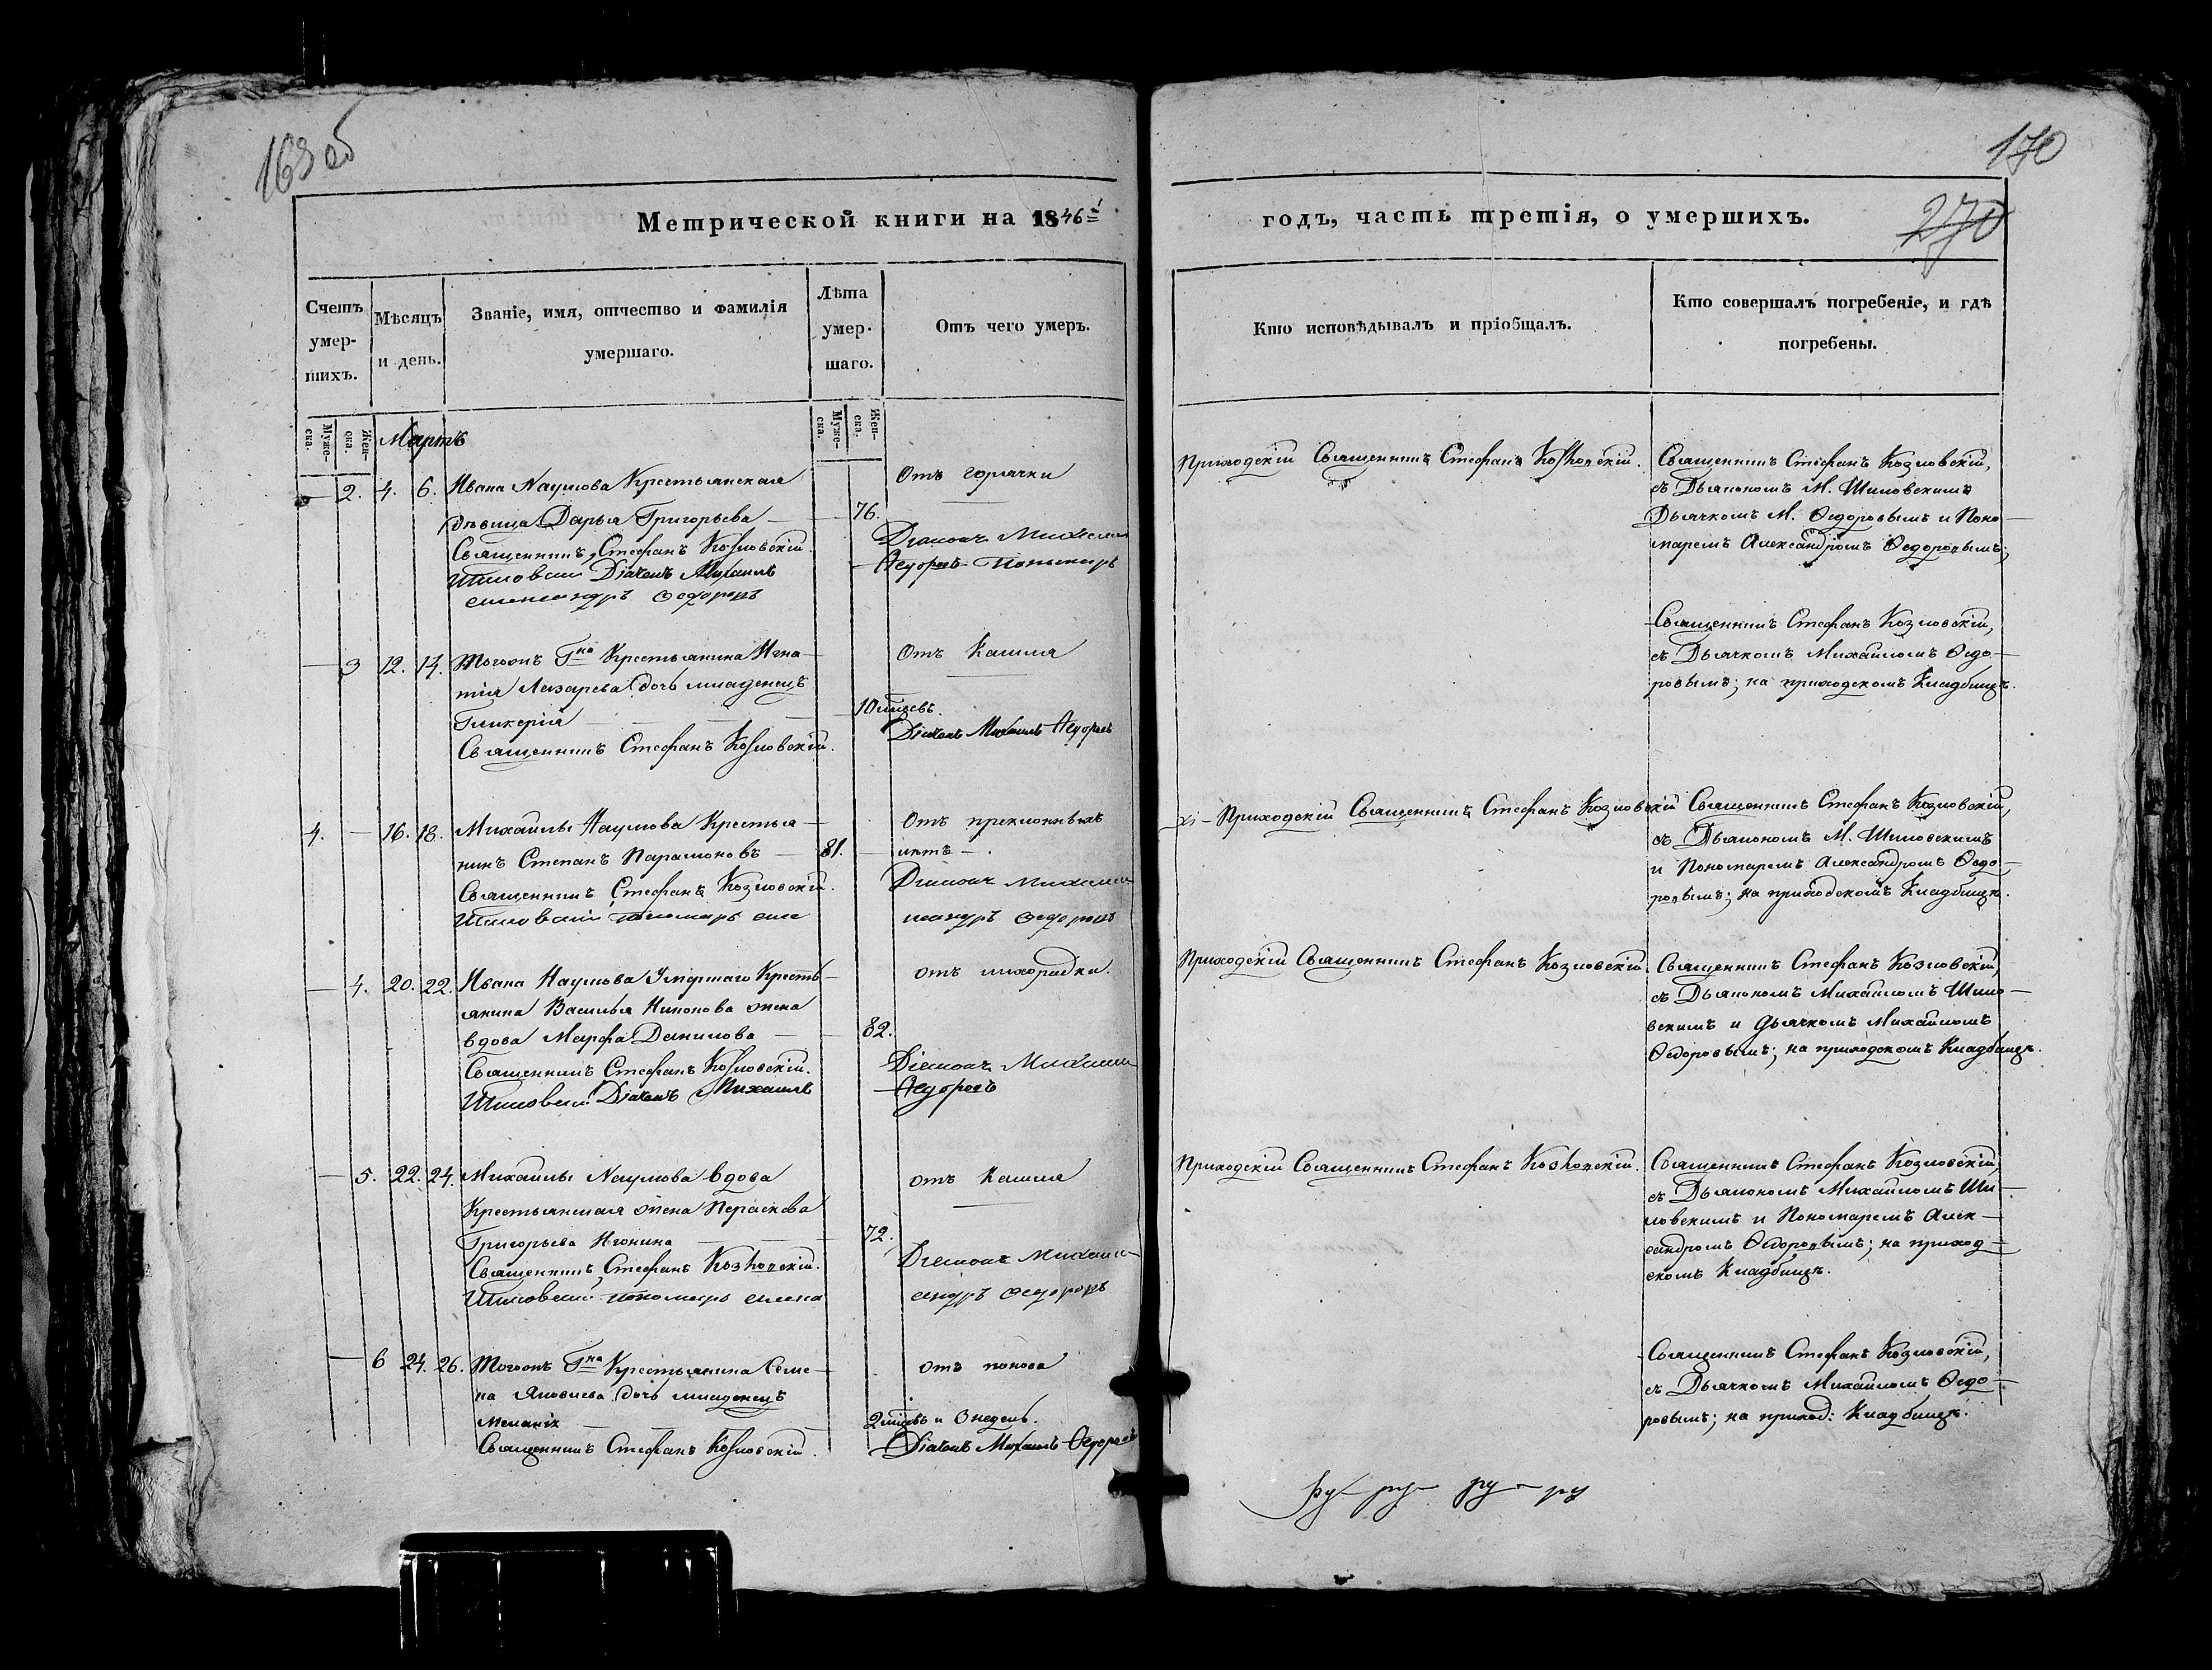 169 об
170
270
Метрической книги на 1846й
годъ, часть третія, о умершихъ.
Счетъ умер-шихъ.
Мѣсяцъ и день.
Званіе, имя, отчество и фамилія
умершаго.
Лѣта умер-шаго.
Отъ чего умеръ.
Кто исповѣдывалъ и пріобщалъ.
Кто совершалъ погребеніе, и гдѣ
погребены.
Муже-ска.
Жен-ска.
Муже-ска.
Жен-ска.
Мартъ
— 2. 4. 6. Ивана Наумова Крестьянская
дѣвица Дарья Григорьева — 76.
Отъ горячки
Священникъ Стефанъ Козловскій. Діаконъ Михаилъ
Шиловскій Діачекъ Михаилъ Ѳедоровъ Пономарь
Александръ Ѳедоровъ
Приходскій Священникъ Стефанъ Козловскій.
Священникъ Стефанъ Козловскій,
съ Дьякономъ М. Шиловскимъ
Дьячкомъ М. Ѳедоровымъ и Поно-
маремъ Александромъ Ѳедоровымъ;
— 3 12. 14. Тогожъ Гна Крестьянина Игна-
тія Лазарева дочь младенецъ
Гликерія — 10 мцевъ.
Отъ Кашля
Священникъ Стефанъ Козловскій. Діачекъ Михаилъ Ѳедоровъ
Священникъ Стефанъ Козловскій,
съ Дьячкомъ Михайломъ Ѳедо-
ровымъ; на приходскомъ Кладбищѣ.
4. — 16. 18. Михайлы Наумова Крестья-
нинъ Степанъ Парамоновъ — 81.
Отъ преклонныхъ
лѣтъ —.
Священникъ Стефанъ Козловскій. Діаконъ Михаилъ
Шиловскій пономарь Александръ Ѳедоровъ
Приходскій Священникъ Стефанъ Козловскій
Священникъ Стефанъ Козловскій,
съ Дьякономъ М. Шиловскимъ
и Пономаремъ Александромъ Ѳедо-
ровымъ; на приходскомъ Кладбищѣ.
— 4. 20. 22. Ивана Наумова Умершаго Кресть-
янина Василья Никонова жена
вдова Марфа Данилова — 82.
отъ лихорадки.
Священникъ Стефанъ Козловскій. Діаконъ Михаилъ
Шиловскій Діачекъ Михаилъ Ѳедоровъ
Приходскій Священникъ Стефанъ Козловскій.
Священникъ Стефанъ Козловскій,
съ Дьякономъ Михайломъ Шило-
вскимъ и Дьячкомъ Михайломъ
Ѳедоровымъ; на приходскомъ Кладбищѣ.
— 5. 22. 24. Михайлы Наумова вдова
Крестьянская жена Параскева
Григорьева — 72.
отъ Кашля
Священникъ Стефанъ Козловскій. Діаконъ Михаилъ
Шиловскій пономарь Александръ Ѳедоровъ
Приходскій Священникъ Стефанъ Козловскій.
Священникъ Стефанъ Козловскій,
съ Дьякономъ Михайломъ Ши-
ловскимъ и Пономаремъ Алек-
сандромъ Ѳедоровымъ; на приход-
скомъ Кладбищѣ.
— 6 24. 26. Тогожъ Гна Крестьянина Семе-
на Яковлева дочь младенецъ
Меланія — 2 мцевъ и 3 недель.
отъ поноса
Священникъ Стефанъ Козловскій. Діачекъ Михаилъ Ѳедоровъ
Священникъ Стефанъ Козловскій,
съ Дьячкомъ Михайломъ Ѳедо-
ровымъ; на приход: Кладбищѣ.
ру— ру— ру— ру